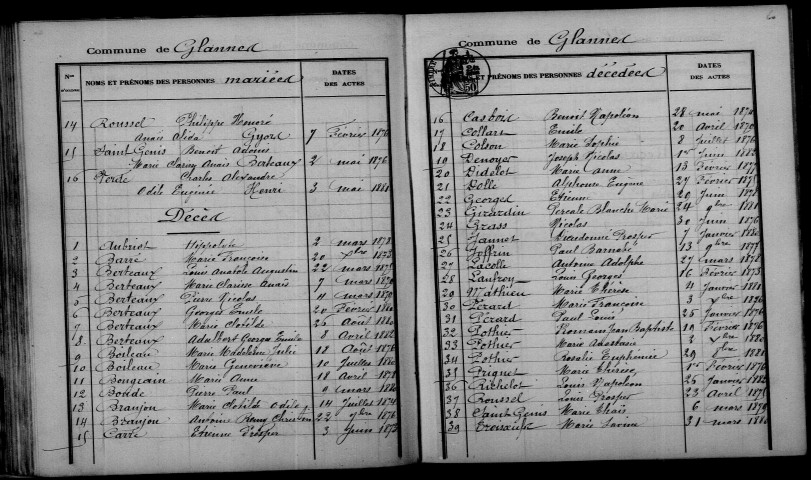 Commune de Glannes
Nos D'ORDRE NOMS ET PRÉNOMS DES PERSONNES mariées DATES DES ACTES
14 Roussel Philippe Honoré
Anaïs Alida Gyot 7 Février 1876
15 Saint Genis Benoit Adonis
Marie Clarisse Anaïs Berteaux 2 mai 1876
16 Charles Alexandre
Odile Eugénie Henri 3 mai 1881
Décès
1 Aubriot Hippolyte 2 mars 1878
2 Barré Marie Françoise 20 Xbre 1873
3 Berteaux Louis Anatole Augustin 22 mars 1875
4 Berteaux Marie Clarisse Anaïs 7 mars 1876
5 Berteaux Pierre Nicolas 4 mars 1876
6 Berteaux Georges Emile 20 Février 1880
7 Berteaux Marie Clotilde 26 Août 1880
8 Berteaux Adalbert Georges Emile 8 Avril 1882
9 Boileau Marie Madeleine Julie 18 Août 1876
10 Boileau Marie Geneviève 10 Juillet 1880
11 Bougrain Marie Anne 18 Avril 1878
12 Boude Pierre Paul 9 mars 1880
13 Branjon Marie Clotilde Odile 14 Juillet 1874
14 Branjon Antoine Remy Christian 22 9bre 1876
15 Carré Etienne Prosper 3 Juin 1873
Commune de Glannes
NOMS ET PRÉNOMS DES PERSONNES décédées DATES DES ACTES
16 Casbois Benoit Napoléon 28 mai 1874
17 Collard Emile 20 Avril 1875
18 Colson Marie Sophie 8 Juillet 1876
19 Denoyer Joseph Nicolas 1er Juin 1882
20 Didelot Marie Anne 13 Février 1877
21 Dolle Alphonse Eugène 27 Février 1875
22 Georges Etienne 20 Juin 1878
23 Girardin Percale Blanche Marie 24 9bre 1881
24 Grass Nicolas 30 Juin 1876
25 Jannet Dieudonné Prosper 7 Janvier 1880
26 Joffrin Paul Barnabé 13 9bre 1877
27 Lacolle Antoine Adolphe 27 mars 1878
28 Lanfroy Louis Georges 16 Février 1873
29 Mathieu Marie Thérèse 21 Janvier 1881
30 Pérard Marie Françoise 3 Xbre 1876
31 Pérard Paul Louis 25 Janvier 1876
32 Pothier Romain Jean Baptiste 19 Février 1876
33 Pothier Marie Anastasie 3 Xbre 1880
34 Pothier Rosalie Euphémie 29 8bre 1881
35 Prignet Marie Thérèse 1er Février 1876
36 Richelot Louis Napoléon 25 Janvier 1882
37 Roussel Louis Prosper 23 Avril 1875
38 Saint Genis Marie Thaïs 6 mars 1879
39 Marie Lavine 31 mars 1880